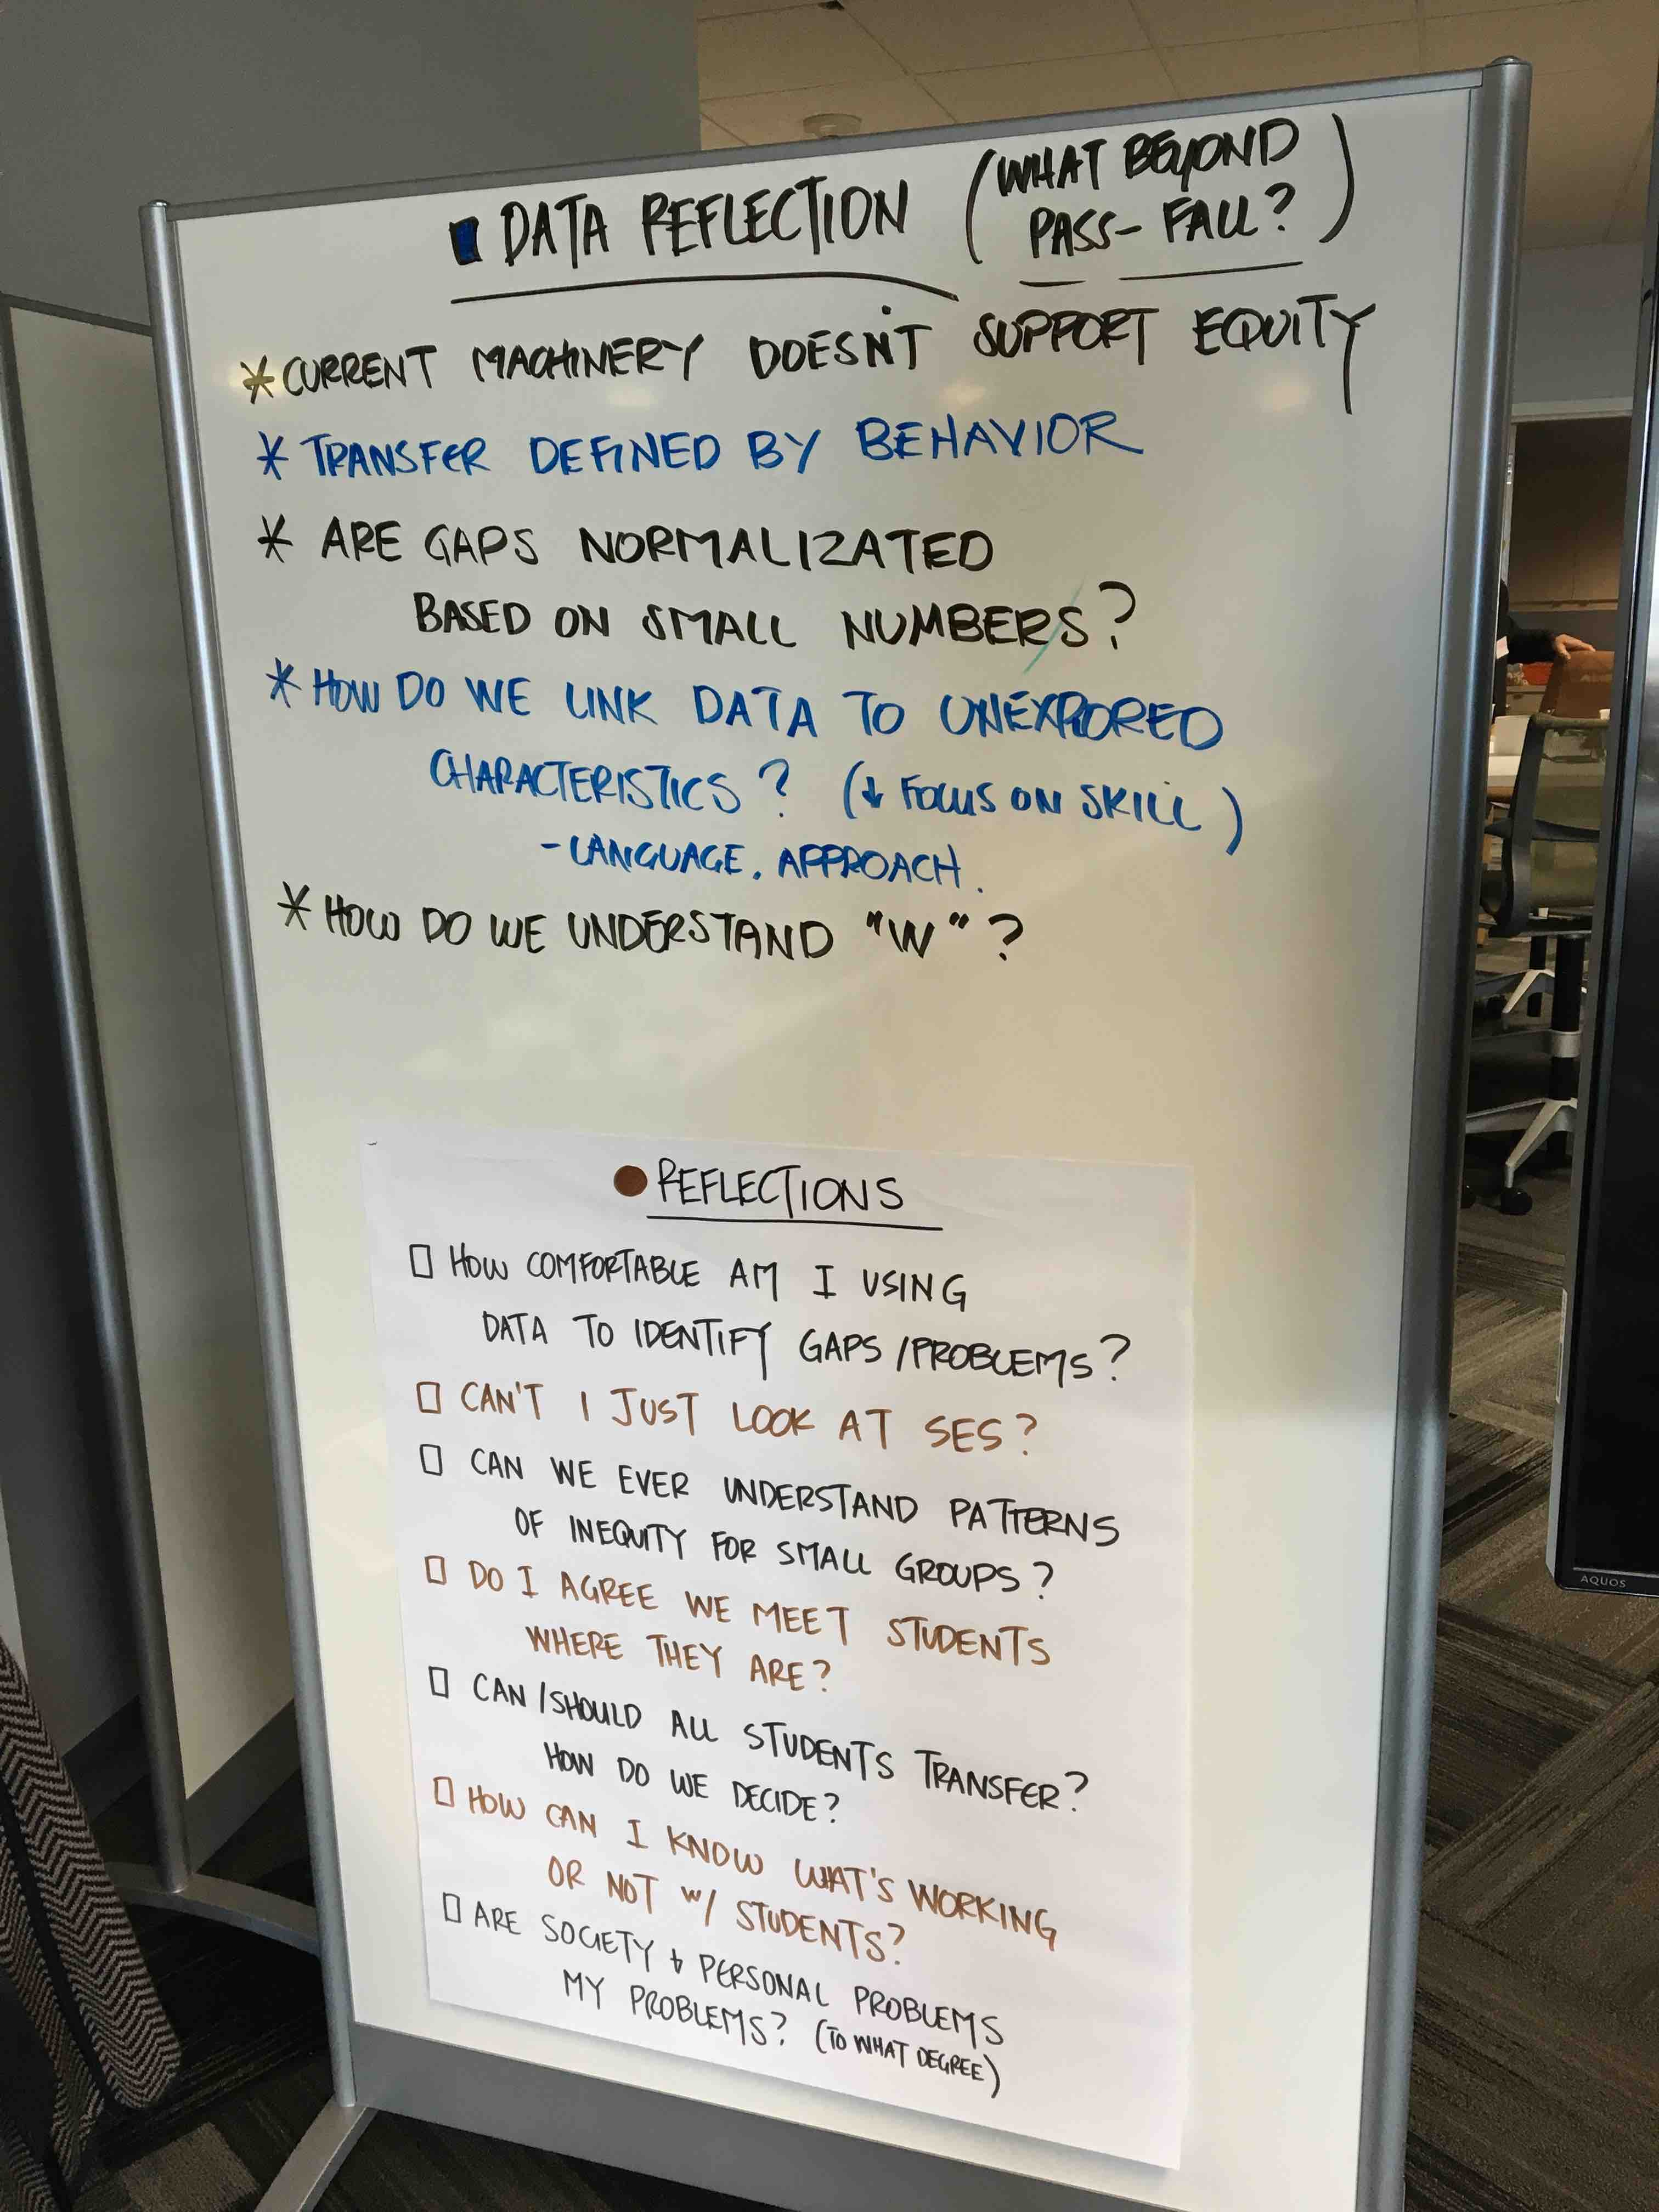 DATA REFLECTION (WHAT BEYOND
PASS-FAIL?)
* CURRENT MACHINERY DOESN'T SUPPORT EQUITY
* TRANSFER DEFINED BY BEHAVIOR
* ARE GAPS NORMALIZATED
BASED ON SMALL NUMBERS?
* HOW DO WE LINK DATA TO UNEXPLORED
CHARACTERISTICS? (↓ FOCUS ON SKILL)
- LANGUAGE, APPROACH.
* HOW DO WE UNDERSTAND "W"?
REFLECTIONS
□ HOW COMFORTABLE AM I USING
DATA TO IDENTIFY GAPS/PROBLEMS?
□ CAN'T I JUST LOOK AT SES?
□ CAN WE EVER UNDERSTAND PATTERNS
OF INEQUITY FOR SMALL GROUPS?
□ DO I AGREE WE MEET STUDENTS
WHERE THEY ARE?
□ CAN/SHOULD ALL STUDENTS TRANSFER?
HOW DO WE DECIDE?
□ HOW CAN I KNOW WHAT'S WORKING
OR NOT w/ STUDENTS?
□ ARE SOCIETY + PERSONAL PROBLEMS
MY PROBLEMS? (TO WHAT DEGREE)
AQUOS